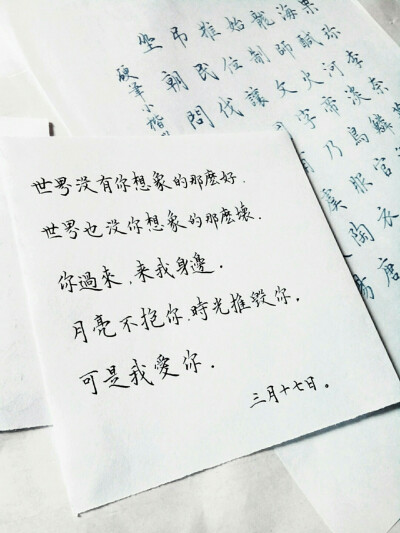 世界没有你想象的那麽好.
世界也没你想象的那麽壞.
你過來,来我身邊。
月亮不抱你,時光摧毁你。
可是我愛你。
三月十七日。
果珍李柰
海鹹河淡鱗
龍師火帝鳥官
始制文字乃服衣
推位讓有虞陶唐
吊民代
坐朝問
硬筆小楷